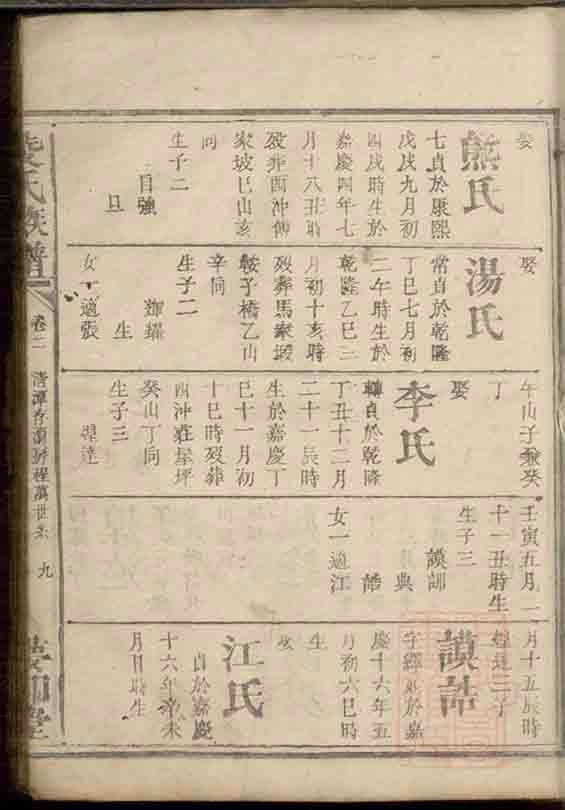 娶
熊氏
七貞於康熙
戊戌九月初
四戌時生於
嘉慶四年七
月十八丑時
歿葬酉沖傅
家坡巳山亥
向
生子二
自強
旦
娶
湯氏
常貞於乾隆
丁巳七月初
二午時生於
乾隆乙巳三
月初十亥時
歿葬馬家塅
鞍子橋乙山
辛向
生子二
輝耀
生
女一適張
午山子兼癸
丁
娶
李氏
轉貞於乾隆
丁丑十二月
二十一辰時
生於嘉慶丁
巳十一月初
十巳時歿葬
酉沖莊屋坪
癸山丁向
生子三
達
壬寅五月二
十一丑時生
生子三
謨訓
典
誥
女一適江
月十五辰時
達二子
謨誥
字 於嘉
慶十六年五
月初六巳時
生
娶
江氏
貞於嘉慶
十六年辛未
月日時生
氏族譜
卷二
九